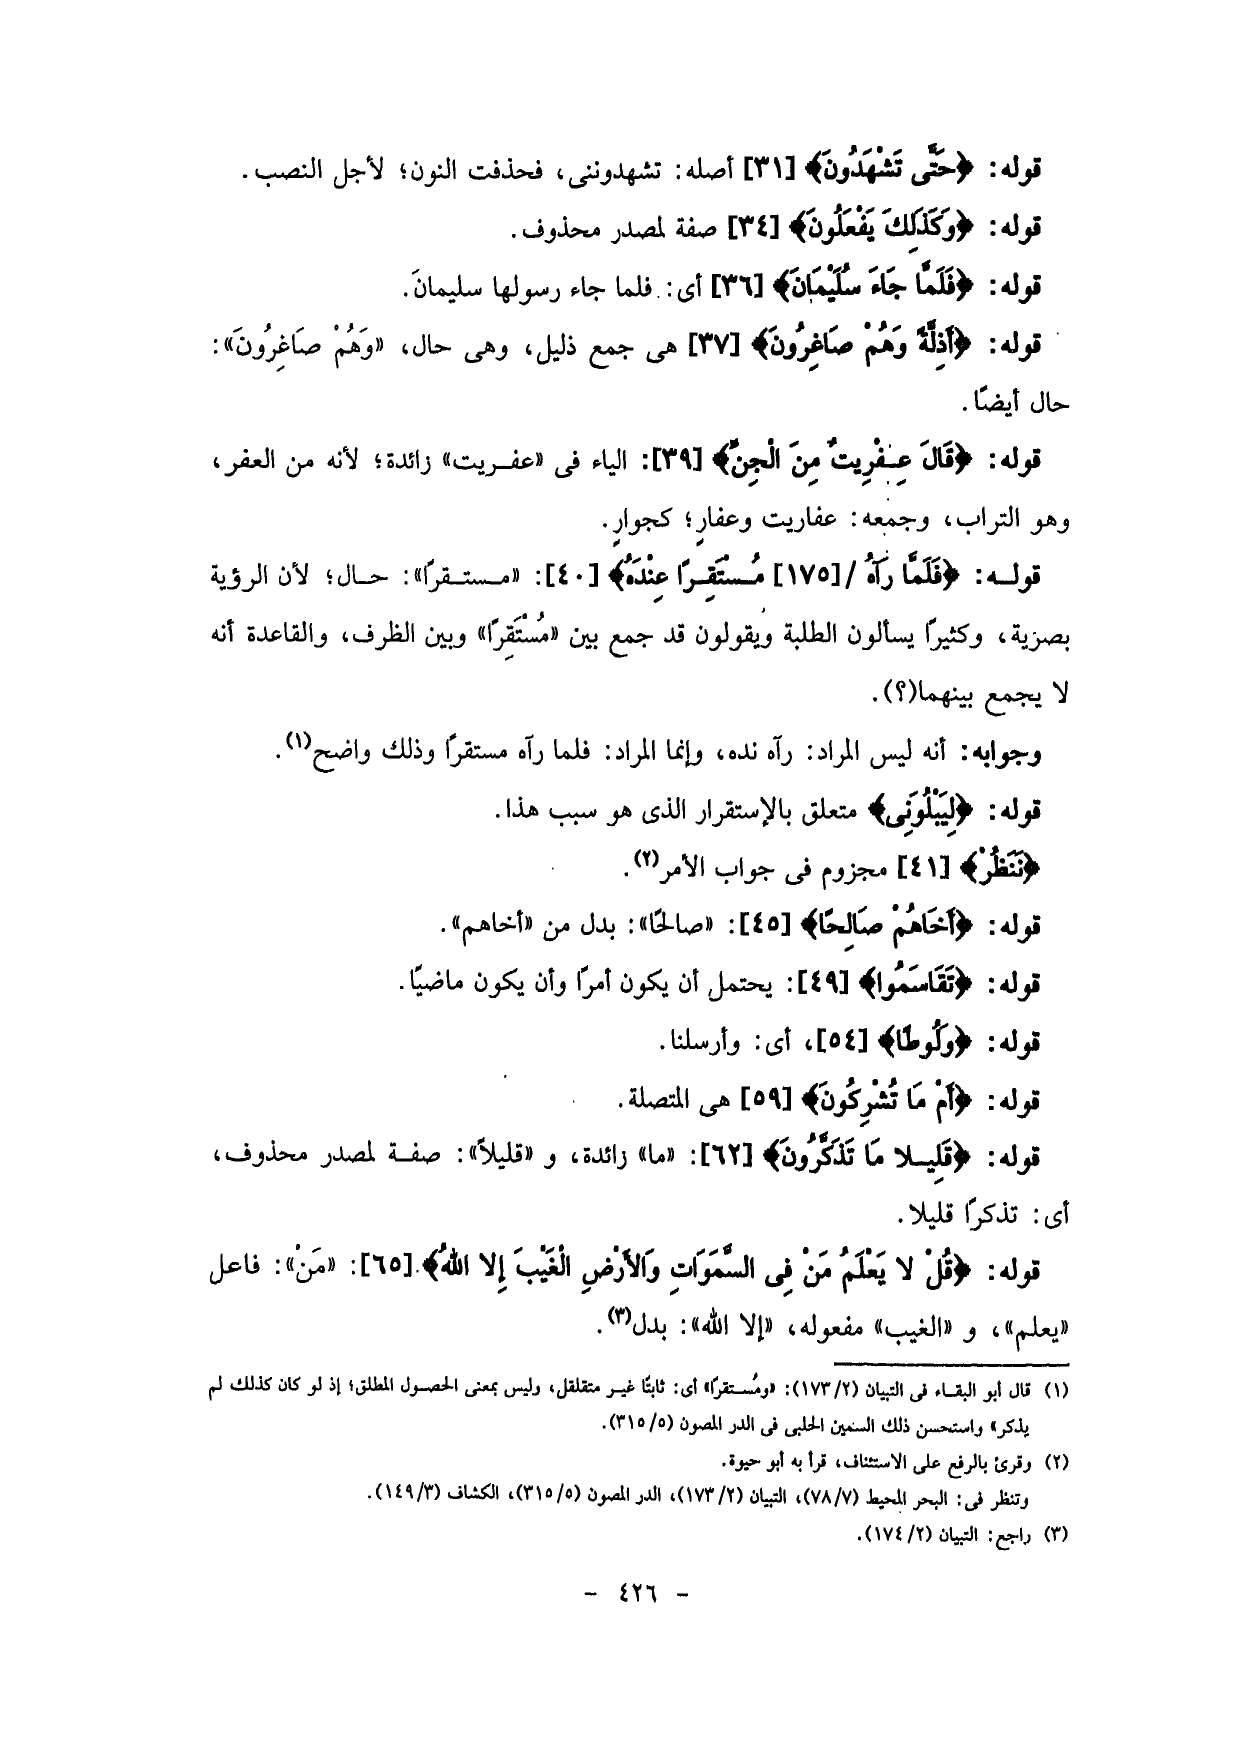 قوله: ﴿حَتَّى تَشْهَدُونَ﴾ [٣١] أصله: تشهدوننى، فحذفت النون؛ لأجل النصب.
قوله: ﴿وَكَذَلِكَ يَفْعَلُونَ﴾ [٣٤] صفة لمصدر محذوف.
قوله: ﴿فَلَمَّا جَاءَ سُلَيْمَانَ﴾ [٣٦] أى: فلما جاء رسولها سليمانَ.
قوله: ﴿أَذِلَّةً وَهُمْ صَاغِرُونَ﴾ [٣٧] هى جمع ذليل، وهى حال، «وَهُمْ صَاغِرُونَ»:
حال أيضًا.
قوله: ﴿قَالَ عِفْرِيتٌ مِنَ الْجِنِّ﴾ [٣٩]: الياء فى «عفريت» زائدة؛ لأنه من العفر،
وهو التراب، وجمعه: عفاريت وعفارٍ؛ كجوارٍ.
قوله: ﴿فَلَمَّا رَآهُ /[١٧٥] مُسْتَقِرًا عِنْدَهُ﴾ [٤٠]: «مستقرًا»: حال؛ لأن الرؤية
بصرية، وكثيرًا يسألون الطلبة ويقولون قد جمع بين «مُسْتَقِرًا» وبين الظرف، والقاعدة أنه
لا يجمع بينهما(؟).
وجوابه: أنه ليس المراد: رآه نده، وإنما المراد: فلما رآه مستقرًا وذلك واضح(١).
قوله: ﴿لِيَبْلُوَنِى﴾ متعلق بالإستقرار الذى هو سبب هذا.
﴿نَنْظُرْ﴾ [٤١] مجزوم فى جواب الأمر(٢).
قوله: ﴿أَخَاهُمْ صَالِحًا﴾ [٤٥]: «صالحًا»: بدل من «أخاهم».
قوله: ﴿تَقَاسَمُوا﴾ [٤٩]: يحتمل أن يكون أمرًا وأن يكون ماضيًا.
قوله: ﴿وَلُوطًا﴾ [٥٤]، أى: وأرسلنا.
قوله: ﴿أَمْ مَا تُشْرِكُونَ﴾ [٥٩] هى المتصلة.
قوله: ﴿قَلِيلا مَا تَذَكَّرُونَ﴾ [٦٢]: «ما» زائدة، و «قليلاً»: صفة لمصدر محذوف،
أى: تذكرًا قليلا.
قوله: ﴿قُلْ لا يَعْلَمُ مَنْ فِى السَّمَوَاتِ وَالأَرْضِ الْغَيْبَ إِلا اللهُ﴾ [٦٥]: «مَنْ»: فاعل
«يعلم»، و «الغيب» مفعوله، «إلا الله»: بدل(٣).
(١) قال أبو البقاء فى التبيان (١٧٣/٢): «ومُستقرًا» أى: ثابتًا غير متقلقل، وليس بمعنى الحصول المطلق؛ إذ لو كان كذلك لم
يذكر» واستحسن ذلك السمين الحلبى فى الدر المصون (٣١٥/٥).
(٢) وقرئ بالرفع على الاستئناف، قرأ به أبو حيوة.
وتنظر فى: البحر المحيط (٧٨/٧)، التبيان (١٧٣/٢)، الدر المصون (٣١٥/٥)، الكشاف (١٤٩/٣).
(٣) راجع: التبيان (١٧٤/٢).
- ٤٢٦ -